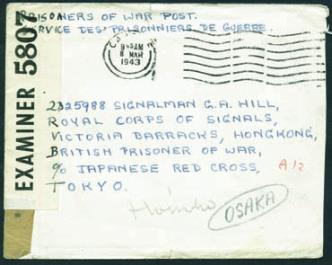 PRISONERS OF WAR POST.
SERVICE DES PRISONNIERS DE GUERRE.
8 MAR
1943
EXAMINER 580
2325988 SIGNALMAN G.A. HILL,
ROYAL CORPS OF SIGNALS,
VICTORIA BARRACKS, HONGKONG,
BRITISH PRISONER OF WAR,
c/o JAPANESE RED CROSS, A12
TOKYO.
OSAKA